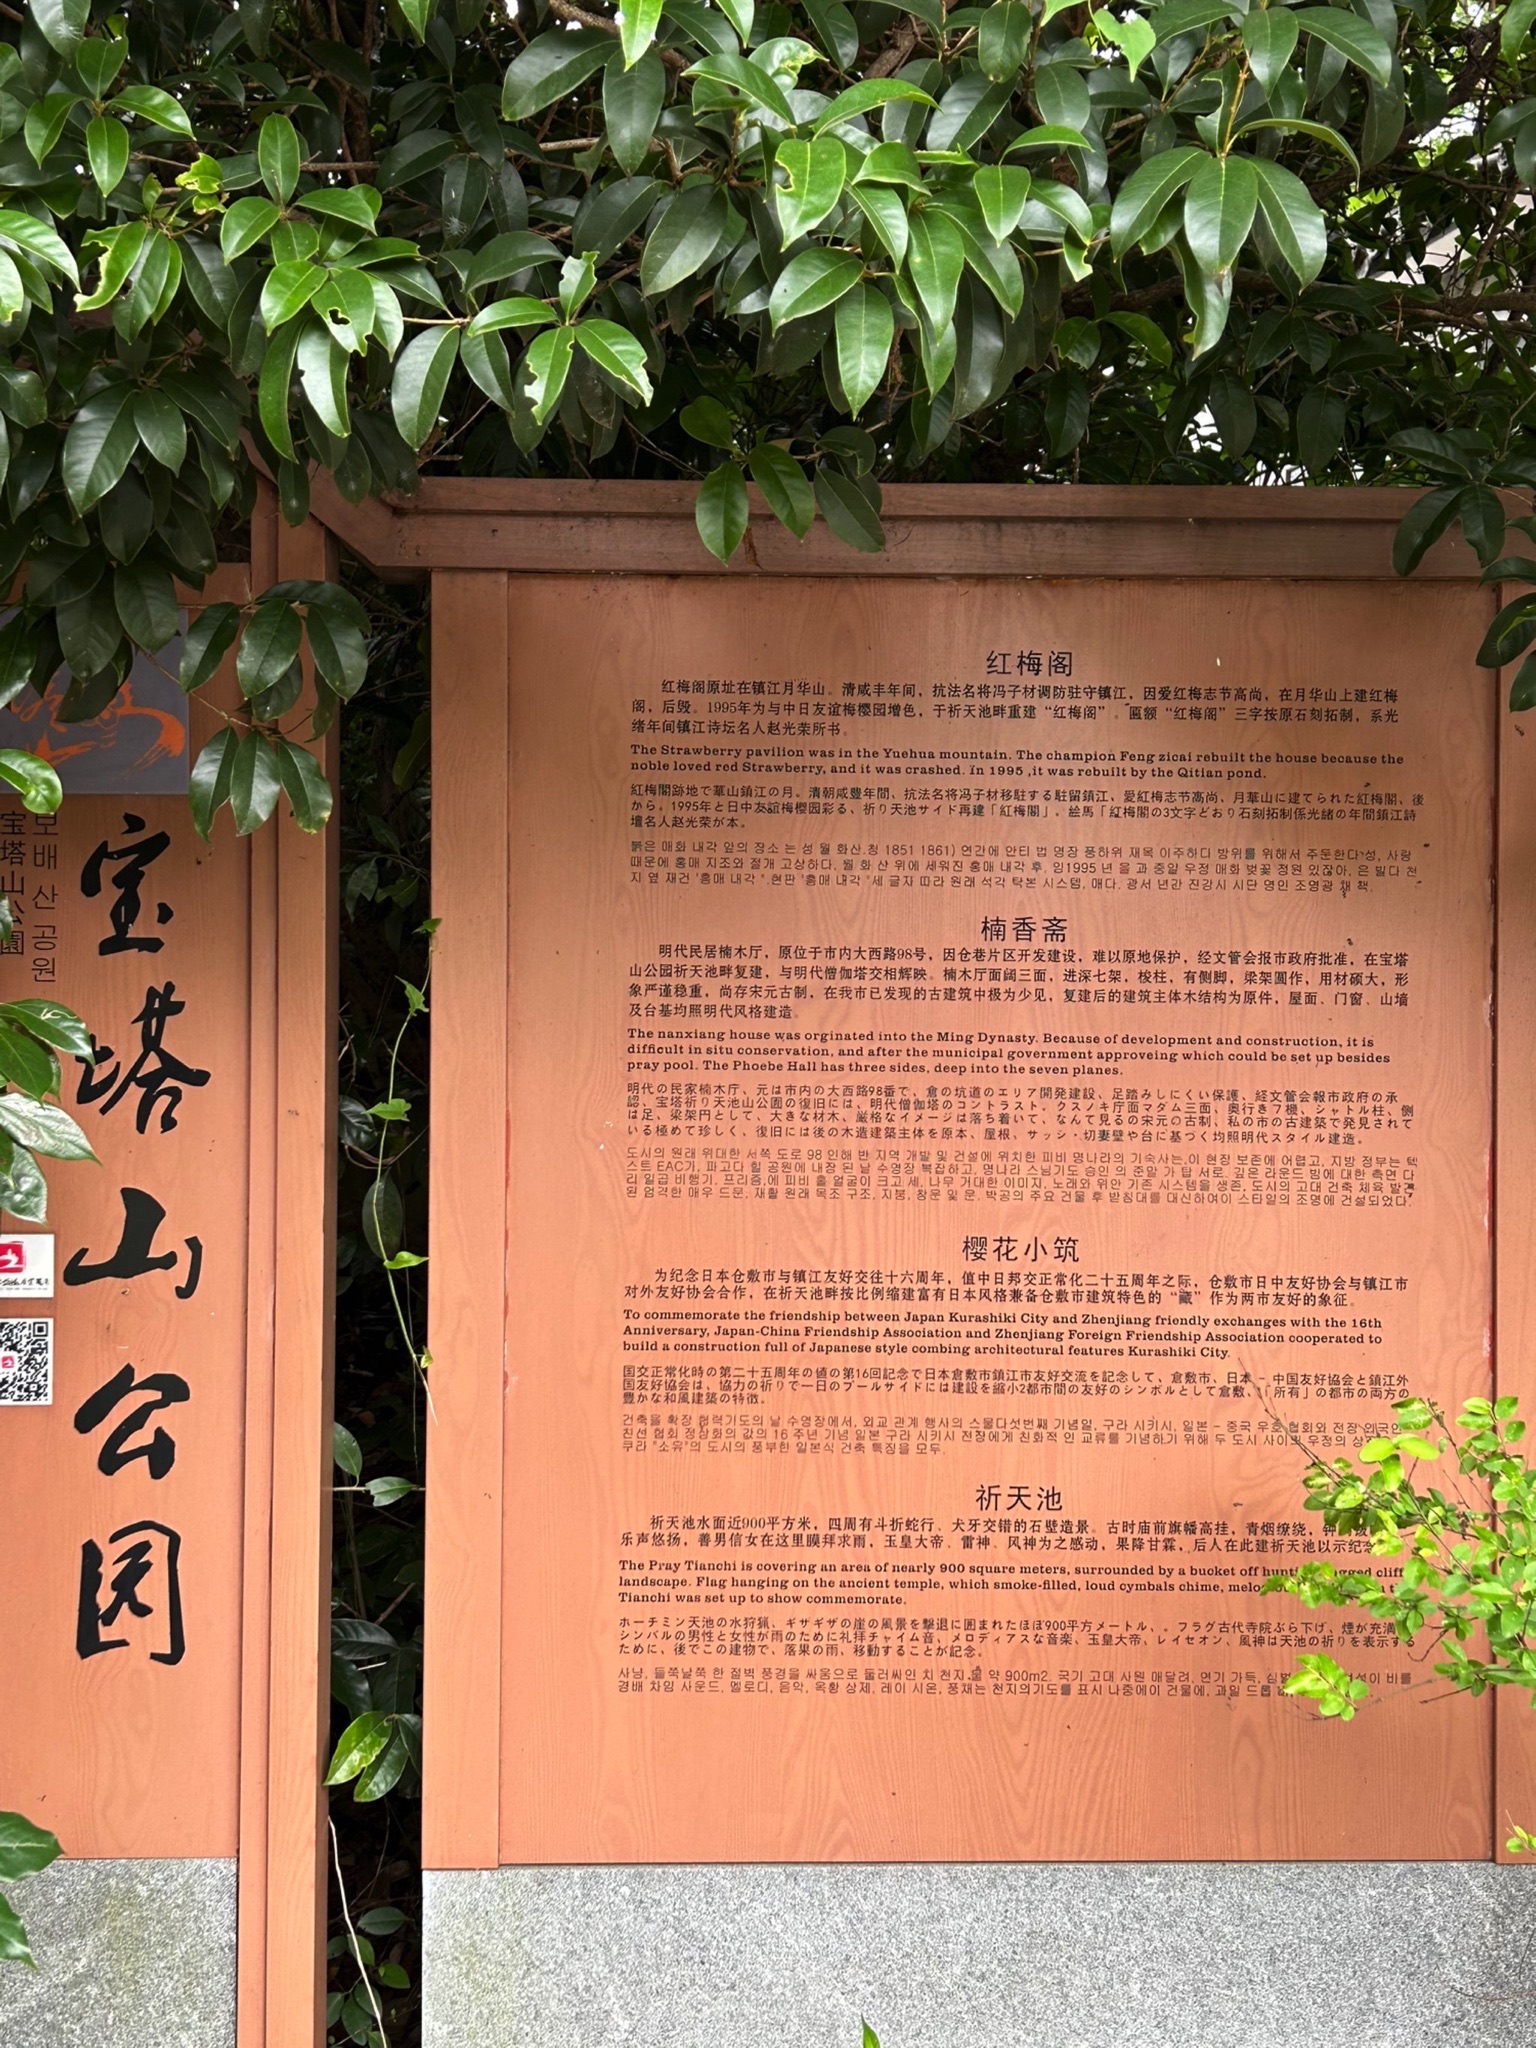 宝塔山公园
보배산공원
宝塔山公園
红梅阁
红梅阁原址在镇江月华山。清咸丰年间，抗法名将冯子材调防驻守镇江，因爱红梅志节高尚，在月华山上建红梅
阁，后毁。1995年为与中日友谊梅樱园增色，于祈天池畔重建“红梅阁”。匾额“红梅阁”三字按原石刻拓制，系光
绪年间镇江诗坛名人赵光荣所书。
The Strawberry pavilion was in the Yuehua mountain. The champion Feng zicai rebuilt the house because the
noble loved red Strawberry, and it was crashed. In 1995 ,it was rebuilt by the Qitian pond.
紅梅閣跡地で華山鎮江の月。清朝咸豊年間、抗法名将冯子材移駐する駐留鎮江，愛紅梅志节高尚、月華山に建てられた紅梅閣、後
から。1995年と日中友誼梅樱园彩る、祈り天池サイド再建「紅梅閣」。絵馬「紅梅閣の3文字どおり石刻拓制係光緒の年間鎮江詩
壇名人赵光荣が本。
붉은 매화 내각 앞의 장소 는 성 월 화산.청 1851 1861) 연간에 안티 법 명장 풍하위 재목 이주하다 방위를 위해서 주둔한다 성, 사랑
때문에 홍매 지조와 절개 고상하다. 월 화 산 위에 세워진 홍매 내각 후, 임1995 년 을 과 중일 우정 매화 벚꽃 정원 있잖아, 은 빌다 천
지 옆 재건 '홍매 내각 ".현판 '홍매 내각 "세 글자 따라 원래 석각 탁본 시스템, 매다. 광서 년간 진강시 시단 명인 조영광 채 책.
楠香斋
明代民居楠木厅，原位于市内大西路98号，因仓巷片区开发建设，难以原地保护，经文管会报市政府批准，在宝塔
山公园祈天池畔复建，与明代僧伽塔交相辉映。楠木厅面阔三面，进深七架，梭柱，有侧脚，梁架圆作，用材硕大，形
象严谨稳重，尚存宋元古制，在我市已发现的古建筑中极为少见，复建后的建筑主体木结构为原件，屋面、门窗、山墙
及台基均照明代风格建造。
The nanxiang house was orginated into the Ming Dynasty. Because of development and construction, it is
difficult in situ conservation, and after the municipal government approveing which could be set up besides
pray pool. The Phoebe Hall has three sides, deep into the seven planes.
明代の民家楠木庁、元は市内の大西路98番で、倉の坑道のエリア開発建設、足踏みしにくい保護、経文管会報市政府の承
認、宝塔祈り天池山公園の復旧には、明代僧伽塔のコントラスト。クスノキ庁面マダム三面、奥行き7機、シャトル柱、側
は足、梁架円として、大きな材木、厳格なイメージは落ち着いて、なんて見るの宋元の古制、私の市の古建築で発見されて
いる極めて珍しく、復旧には後の木造建築主体を原本、屋根、サッシ・切妻壁や台に基づく均照明代スタイル建造。
도시의 원래 위대한 서쪽 도로 98 인해 반 지역 개발 및 건설에 위치한 피비 명나라의 기숙사는 이 현장 보존에 어렵고, 지방 정부는 텍
스트 EAC가, 파고다 힐 공원에 내장 된 날 수영장 복잡하고, 명나라 스님기도 승인 의 준말 가 탑 서로. 깊은 라운드 빔에 대한 측면 다
리 일곱 비행기, 프리즘,에 피비 홀 얼굴이 크고 세, 나무 거대한 이미지, 노래와 위안 기존 시스템을 생존, 도시의 고대 건축 체육 발견
된 엄격한 매우 드문, 재활 원래 목조 구조, 지붕, 창문 및 문, 박공의 주요 건물 후 받침대를 대신하여이 스타일의 조명에 건설되었다.
樱花小筑
为纪念日本仓敷市与镇江友好交往十六周年，值中日邦交正常化二十五周年之际，仓敷市日中友好协会与镇江市
对外友好协会合作，在祈天池畔按比例缩建富有日本风格兼备仓敷市建筑特色的“藏”作为两市友好的象征。
To commemorate the friendship between Japan Kurashiki City and Zhenjiang friendly exchanges with the 16th
Anniversary, Japan-China Friendship Association and Zhenjiang Foreign Friendship Association cooperated to
build a construction full of Japanese style combing architectural features Kurashiki City.
国交正常化時の第二十五周年の値の第16回記念で日本倉敷市鎮江市友好交流を記念して、倉敷市、日本 - 中国友好協会と鎮江外
国友好協会は、協力の祈りで一日のプールサイドには建設を縮小2都市間の友好のシンボルとして倉敷、「所有」の都市の両方の
豊かな和風建築の特徴。
건축을 확장 협력기도의 날 수영장에서, 외교 관계 행사의 스물다섯번째 기념일, 구라 시키시, 일본 - 중국 우호 협회와 전장 외국인
친선 협회 정상화의 값의 16 주년 기념 일본 구라 시키시 전장에게 친화적 인 교류를 기념하기 위해 두 도시 사이의 우정의
쿠라 "소유"의 도시의 풍부한 일본식 건축 특징을 모두.
祈天池
祈天池水面近900平方米，四周有斗折蛇行、犬牙交错的石壁造景。古时庙前旗幡高挂，青烟缭绕，钟
乐声悠扬，善男信女在这里膜拜求雨，玉皇大帝、雷神、风神为之感动，果降甘霖，后人在此建祈天池以示纪念
The Pray Tianchi is covering an area of nearly 900 square meters, surrounded by a bucket off jagged cliff
landscape. Flag hanging on the ancient temple, which smoke-filled, loud cymbals chime,
Tianchi was set up to show commemorate.
ホーチミン天池の水狩猟、ギザギザの崖の風景を撃退に囲まれたほぼ900平方メートル、。フラグ古代寺院ぶら下げ、煙が充満
シンバルの男性と女性が雨のために礼拝チャイム音、メロディアスな音楽、玉皇大帝、レイセオン、風神は天池の祈りを表示する
ために、後でこの建物で、落果の雨、移動することが記念。
사냥, 들쭉날쭉 한 절벽 풍경을 싸움으로 둘러싸인 치 천지 물 약 900m2. 국기 고대 사원 매달려, 연기 가득, 비를
경배 차임 사운드, 멜로디, 음악, 옥황 상제, 레이 시온, 풍재는 천지의기도를 표시 나중에이 건물에, 과일 드롭